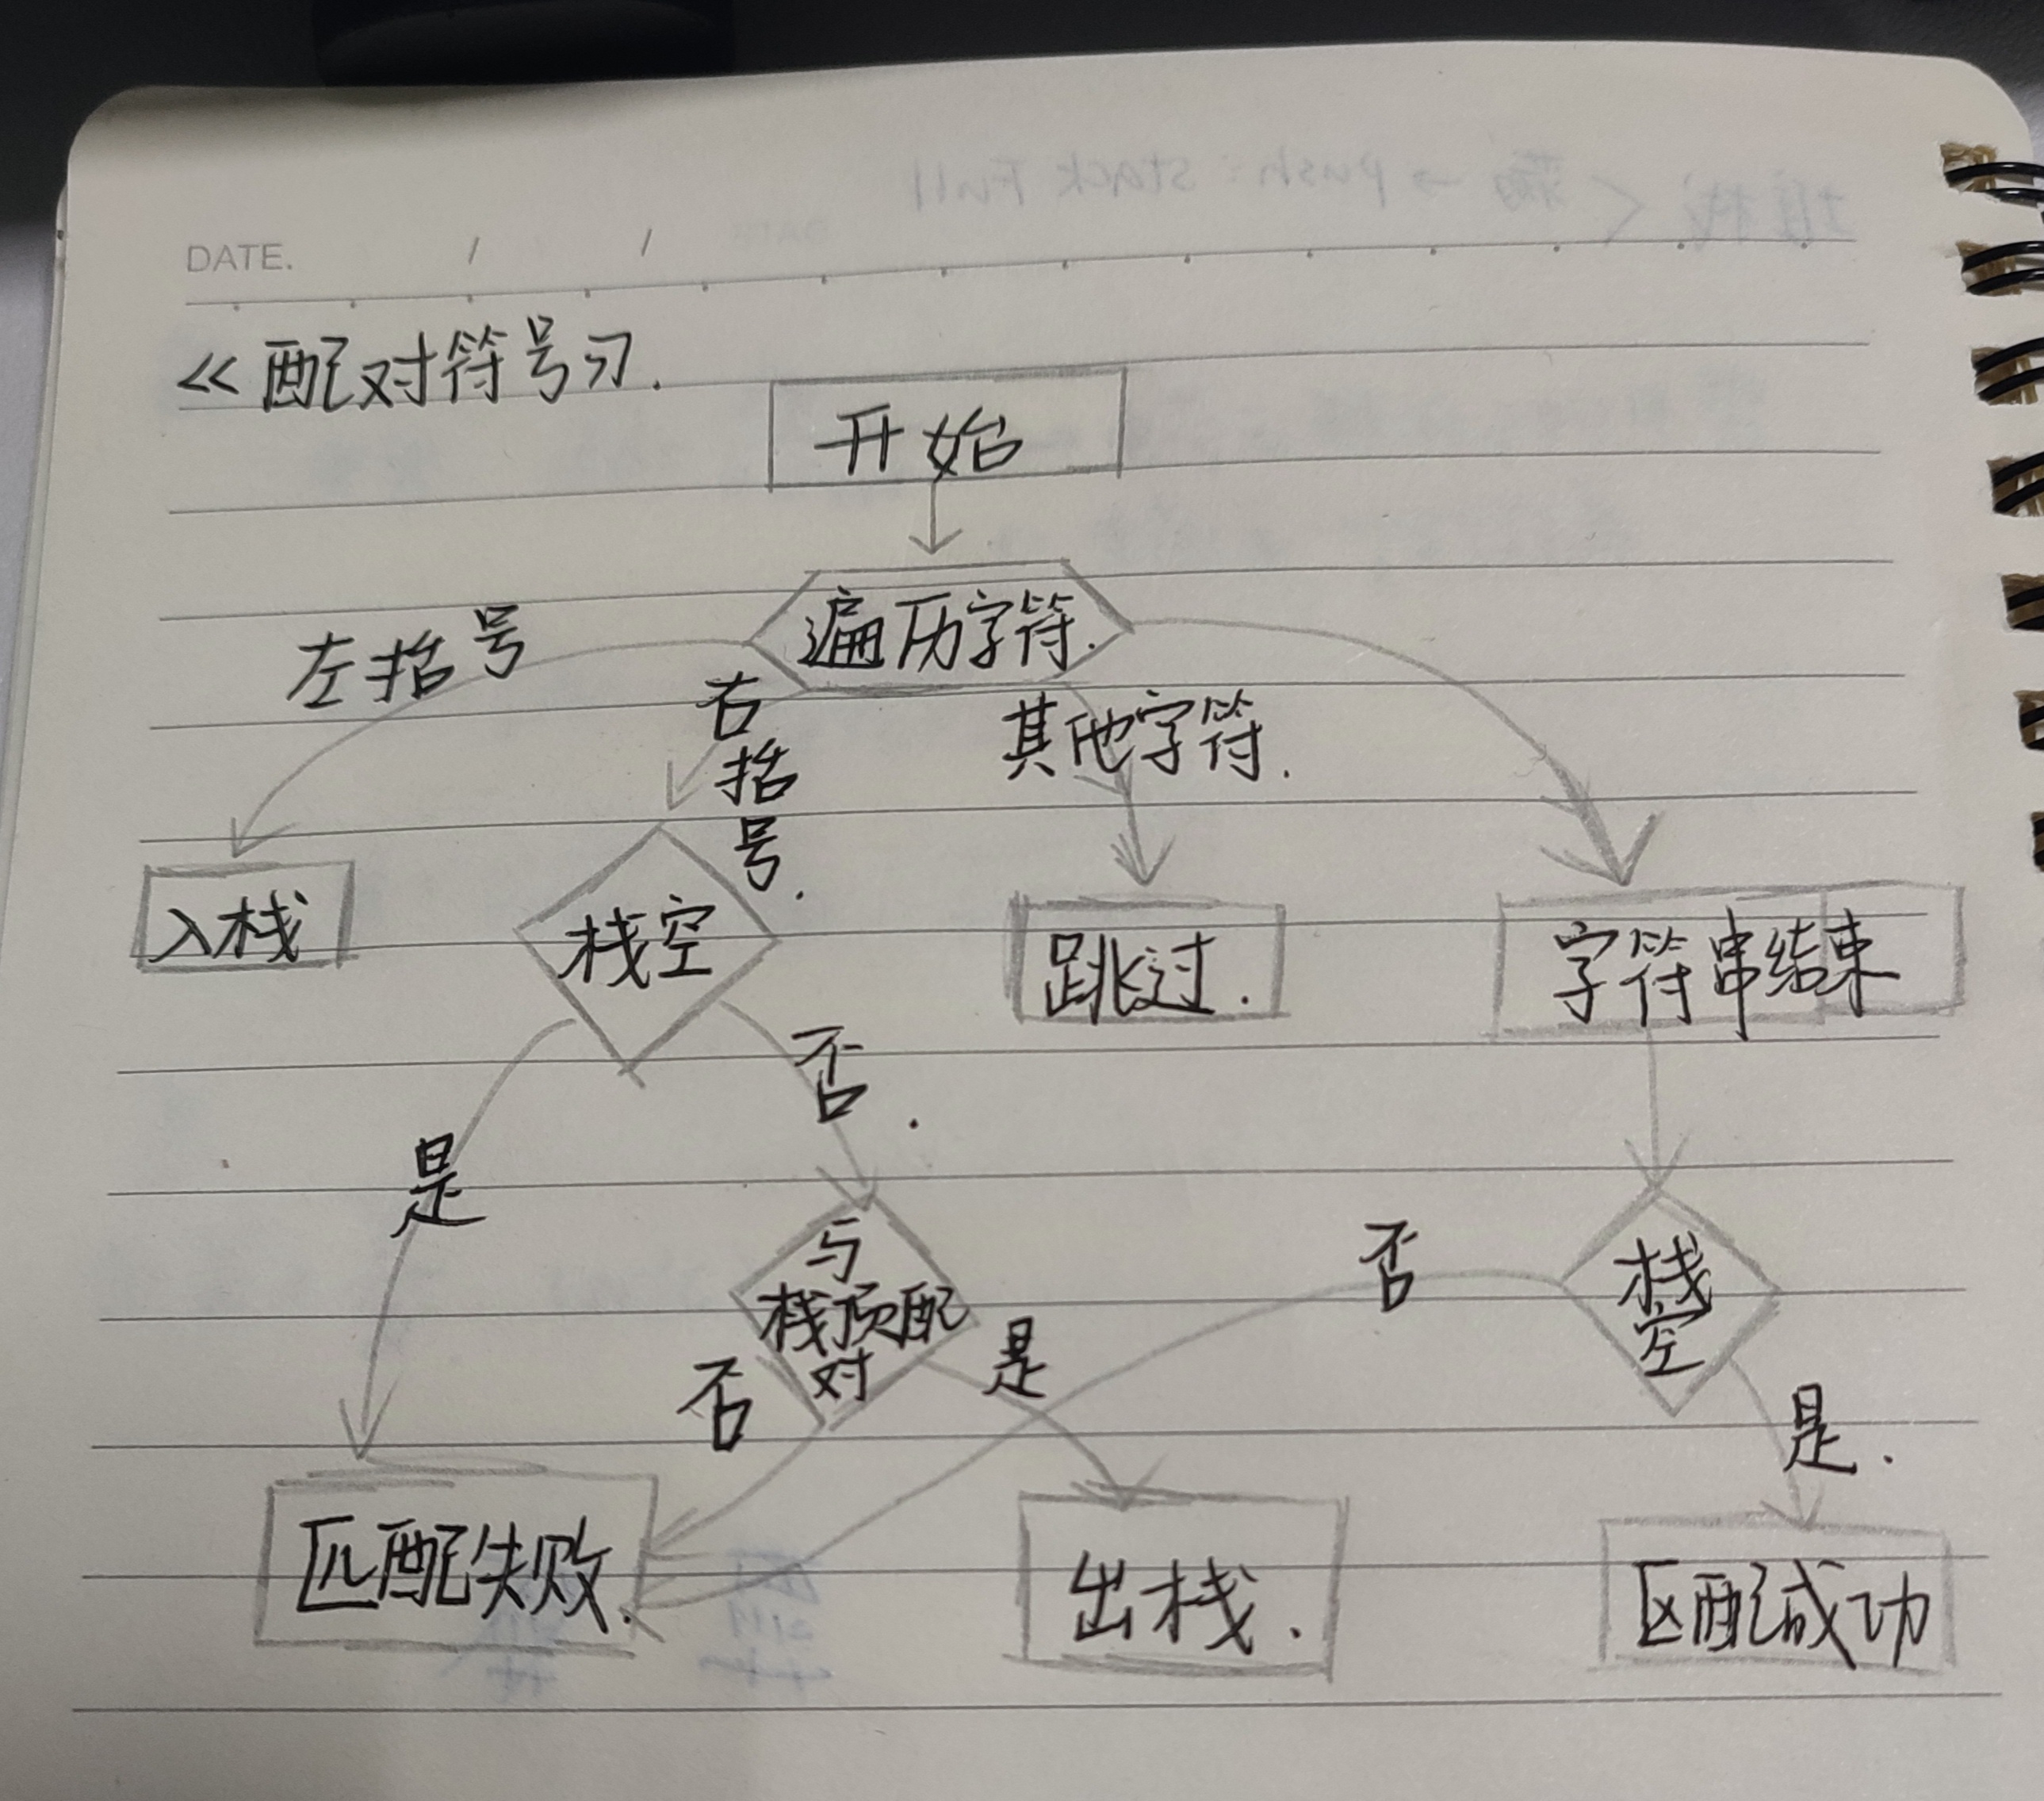 DATE. / /
《配对符号》.
开始
遍历字符.
左括号
右括号.
其他字符.
入栈
栈空
跳过.
字符串结束
是
否.
与栈顶配对
栈空
否
是
否
是.
匹配失败.
出栈.
匹配成功